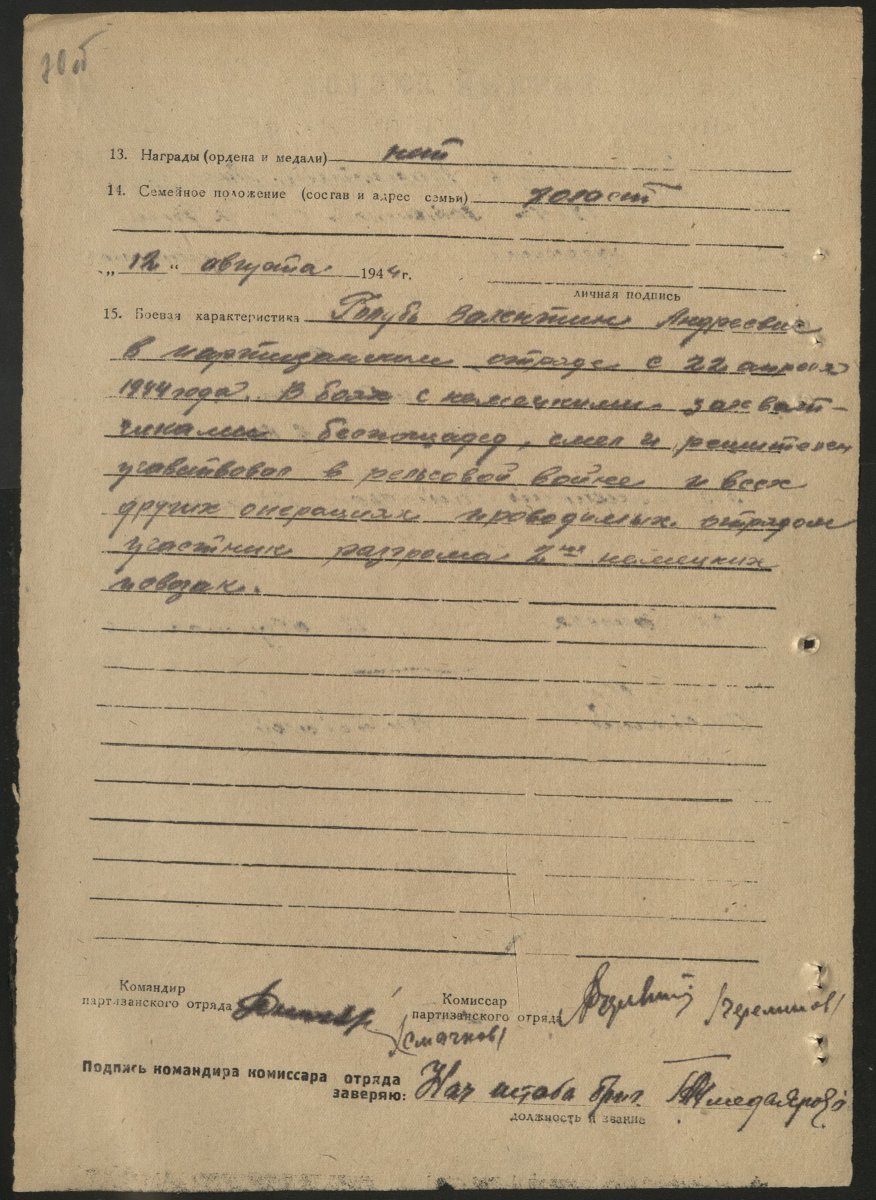 70об
13. Награды (ордена и медали) нет
14. Семейное положение (состав и адрес семьи) холост
„ 12 " августа 1944 г.
личная подпись
15. Боевая характеристика Голубь Валентин Андреевич
в партизанском отряде с 22 апреля
1944 года. В боях с немецкими захват-
чиками беспощаден, смел и решителен
учавствовал в рельсовой войне и всех
других операциях проводимых отрядом
участник разгрома 2-ух немецких
повозок.
Командир
партизанского отряда
/Смачков/
Комиссар
партизанского отряда /Черемисов/
Подпись командира комиссара отряда
заверяю: Нач штаба бриг.
должность и звание